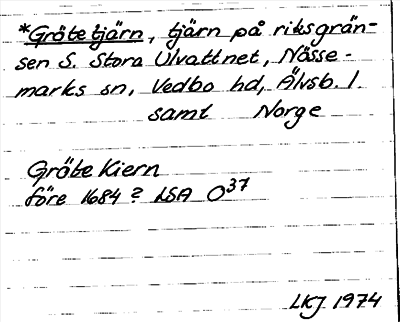 *Gräte tjärn, tjärn på riksgrän-
sen S. Stora Ulvattnet, Nösse-
marks sn, Vedbo hd, Älvsb. l.
samt Norge
Gräte Kiern
före 1684? LSA O37
LKJ 1974